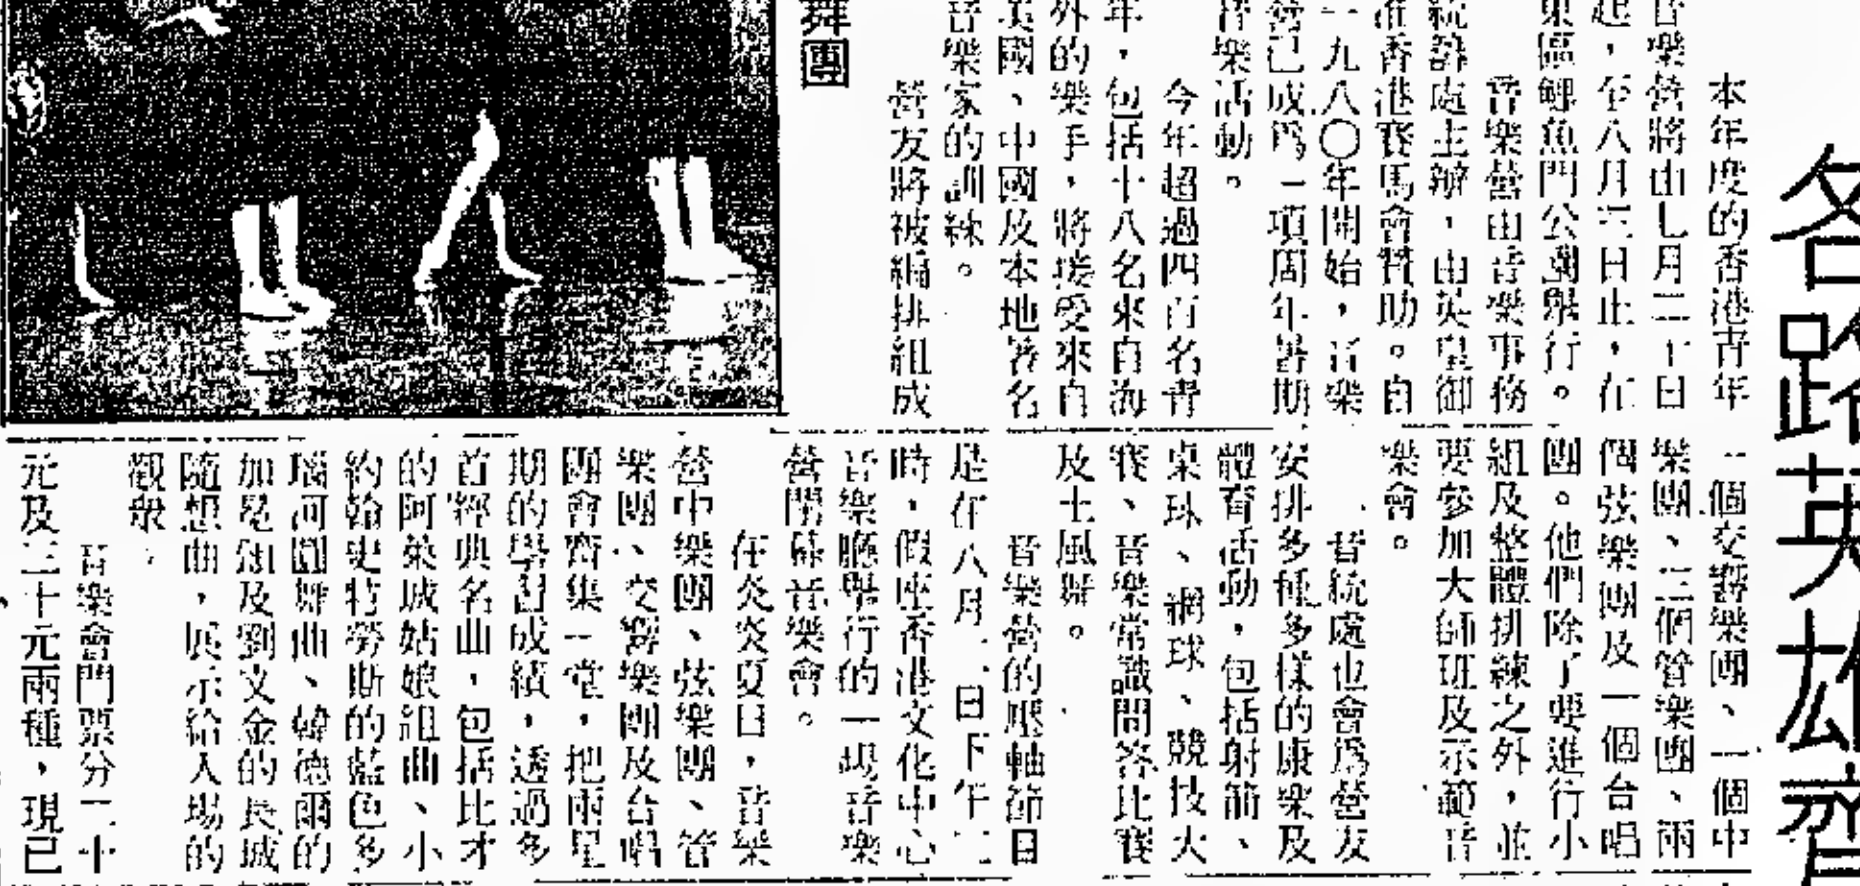 各路英雄齊
本年度的香港青年
音樂營將由七月二十日
起，至八月三日止，在
東區鯉魚門公園舉行。
音樂營由音樂事務
統籌處主辦，由英皇御
准香港賽馬會贊助。自
一九八〇年開始，音樂
營已成爲一項周年暑期
音樂活動。
今年超過四百名青
年，包括十八名來自海
外的樂手，將接受來自
美國、中國及本地著名
音樂家的訓練。
營友將被編排組成
舞團
一個交響樂團、一個中
樂團、三個管樂團、兩
個弦樂團及一個合唱
團。他們除了要進行小
組及整體排練之外，並
要參加大師班及示範音
樂會。
音統處也會爲營友
安排多種多樣的康樂及
體育活動，包括射箭、
桌球、網球、競技大
賽、音樂常識問答比賽
及土風舞。
音樂營的壓軸節目
是在八月 日下午
時，假座香港文化中心
音樂廳舉行的一場音樂
營閉幕音樂會。
在炎炎夏日，音樂
營中樂團、弦樂團、管
樂團、交響樂團及合唱
團會齊集一堂，把兩星
期的學習成績，透過多
首經典名曲，包括比才
的阿萊城姑娘組曲、小
約翰史特勞斯的藍色多
瑙河圓舞曲、韓德爾的
加冕頌及劉文金的長城
隨想曲，展示給入場的
觀衆。
音樂會門票分二十
元及三十元兩種，現已